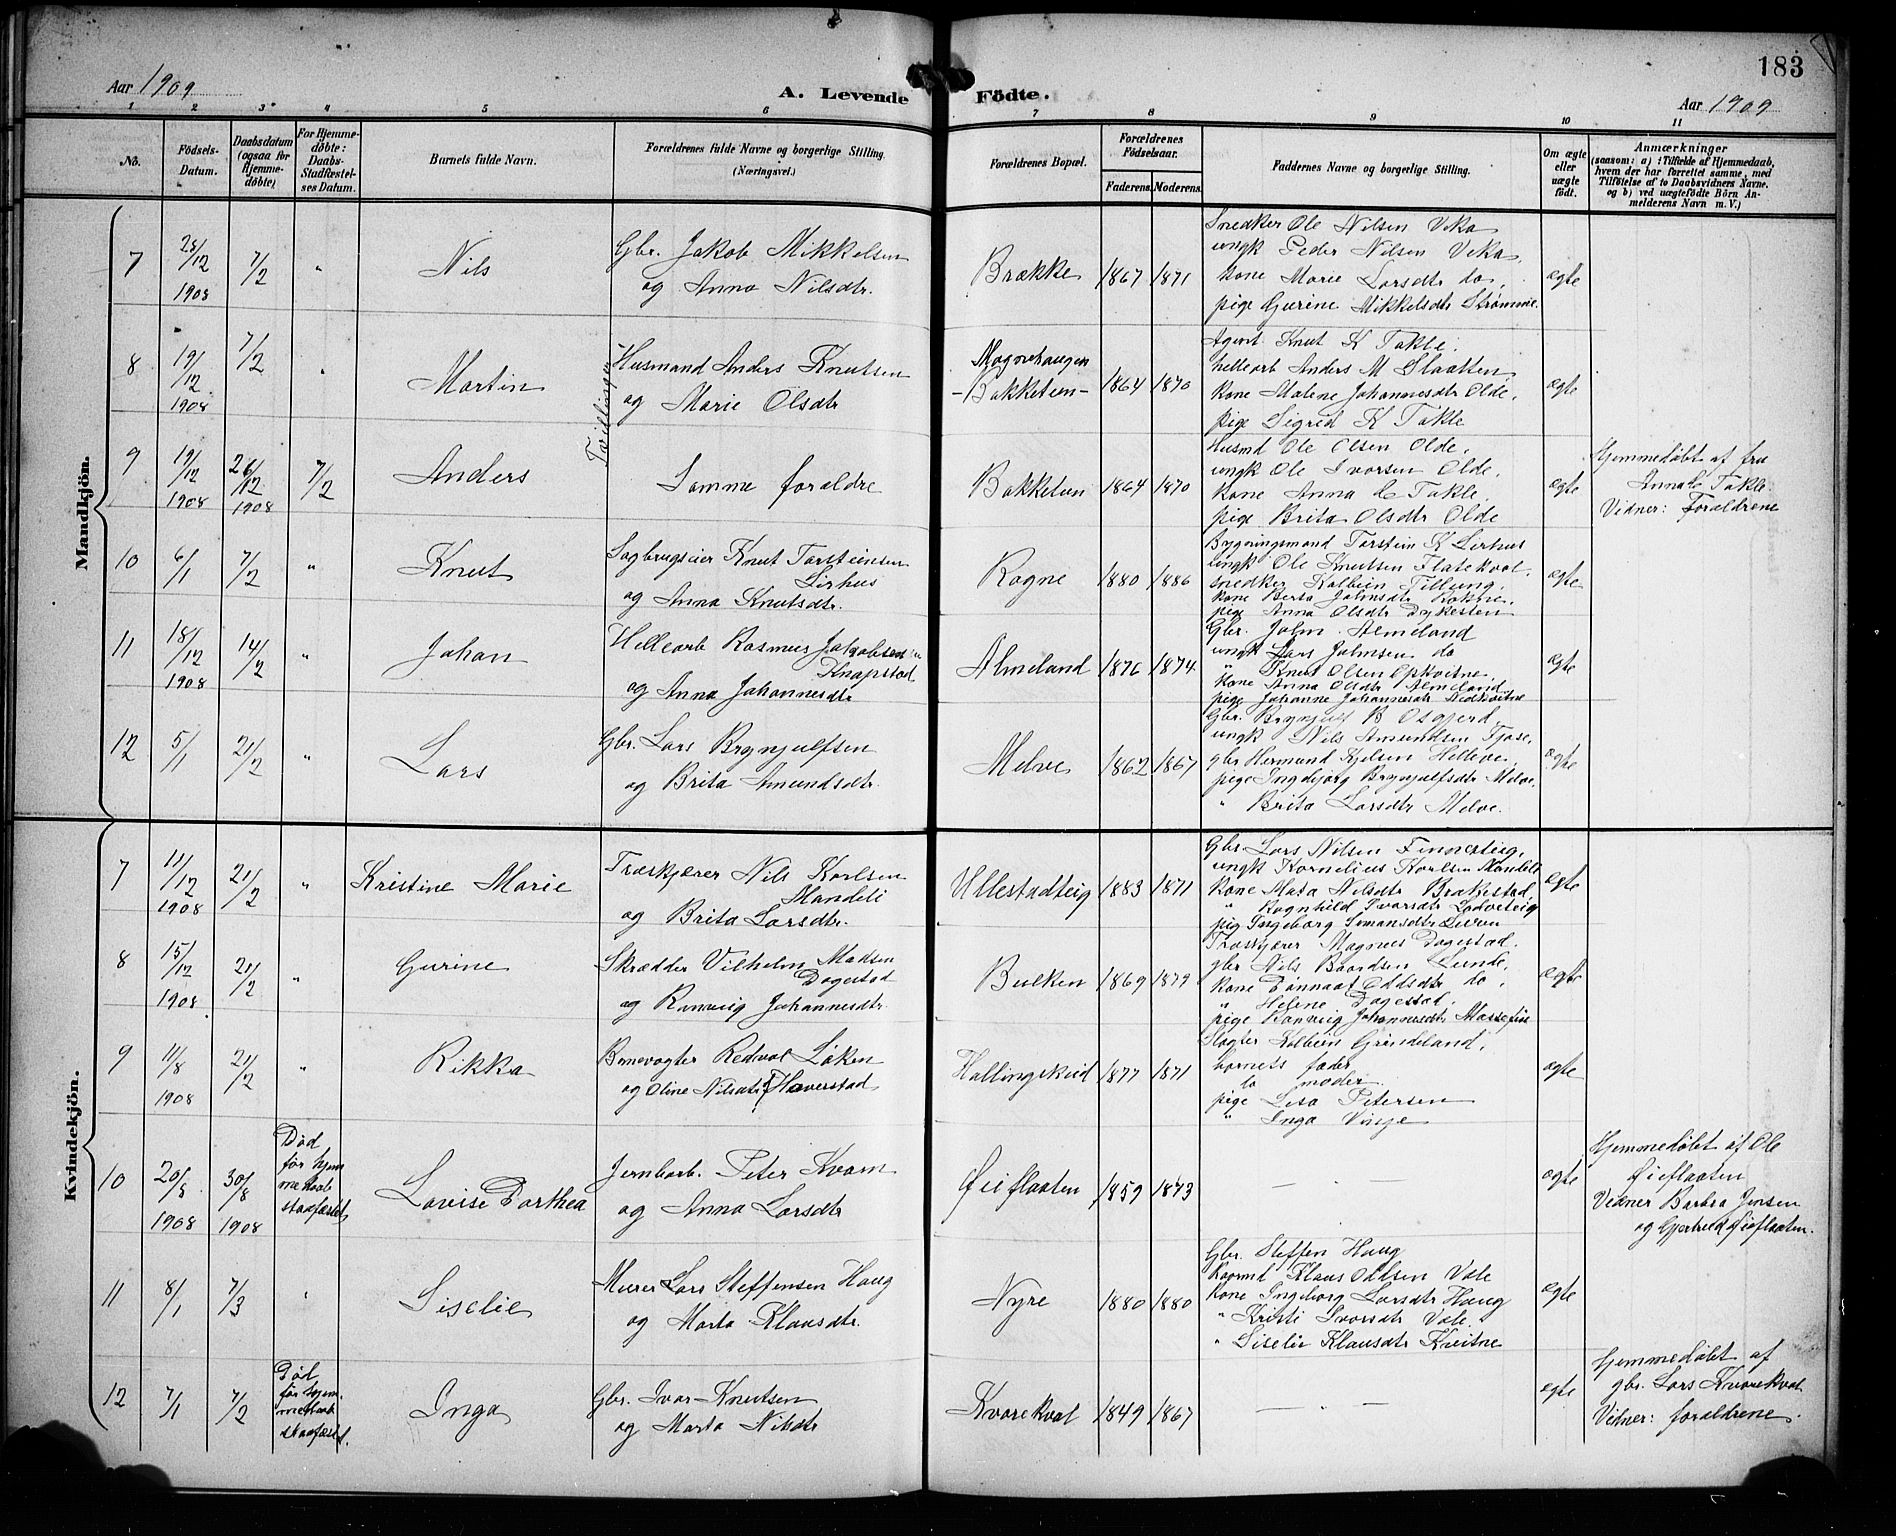 183
Aar 1909
A. Levende Födte.
Aar 1909
1 2 3 4 5 6 7 8 9 10 11
No.
Födsels-Datum.
Daabsdatum (ogsaa for Hjemmedöbte)
For Hjemmedöbte: Daabs-Stadfæstelses Datum.
Barnets fulde Navn.
Forældrenes fulde Navne og borgerlige Stilling. (Næringsvei.)
Forældrenes Bopæl.
Forældrenes Födselsaar.
Faderens. Moderens.
Faddernes Navne og borgerlige Stilling.
Om ægte eller uægte födt.
Anmærkninger
(saasom: a) i Tilfælde af Hjemmedaab, hvem der har forrettet samme, med Tilföielse af to Daabsvidners Navne, og b) ved uægtefödte Börn Anmelderens Navn m. V.)
Mandkjön.
7 28/12 1908 7/2 " Nils
Gbr. Jakob Mikkelsen
og Anna Nilsdtr.
Brække 1867 1871
Snedker Ole Nilsen Veka
ungk Peder Nilsen Veka.
kone Marie Larsdtr do.
pige Gurine Mikkelsdtr Strømme.
ægte
8 19/12 1908 7/2 " Martin
Tvillinger
Husmand Anders Knutsen
og Marie Olsdtr
Magnehaugen
-Bakketun- 1864 1870
Agent Knut K Takle.
hellearb Anders M Slaatten,
kone Malene Johannesdtr Olde,
pige Sigrid K Takle
ægte
9 19/12 1908 26/12 1908 7/2 Anders
Samme foraldre
Bakketun 1864 1870
Husmd Ole Olsen Olde.
ungk Ole Ivarsen Olde.
kone Anna C Takle.
pige Brita Olsdtr Olde
ægte
Hjemmedøbt af fru
Anna C Takle.
Vidner: Foraldrene
10 6/1 7/2 " Knut
Sagbrugseier Knut Torsteinsen
Lirhus
og Anna Knutsdtr.
Rogne 1880 1886
Bygningsmand Torstein K Lirhus
ungk Ole Knutsen Flatekval.
snedker Kolbein Tillung.
kone Berta Johnsdtr Rokne.
pige Anna Olsdtr Dykesten
ægte
11 18/12 1908 14/2 " Johan
Hellearb Rasmus Jakobsen
Knapstad
og Anna Johannesdtr
Almeland 1876 1874
Gbr. John Almeland
ungk Lars Johnsen do
" Knut Olsen Opkvitne.
kone Anna Olsdtr Almeland
pige Johanne Johannesdtr Nedkvitne
ægte
12 5/1 21/2 " Lars
Gbr. Lars Brynjulfsen
og Brita Amundsdtr.
Melve 1862 1867
Gbr. Brynjulf B Osgjerd.
ungk Nils Amundsen Fjose.
gbr Hermund Kjelsen Helleve.
pige Ingebjørg Brynjulfsdtr Melve.
" Brita Larsdtr Melve.
ægte
Kvindekjön.
7 11/12 1908 21/2 " Kristine Marie
Træskjærer Nils Karlsen
Mandeli
og Brita Larsdtr.
Ullestadteig 1883 1871
Gbr. Lars Nilsen Finnesteig,
ungk Kornelius Karlsen Mandeli
kone Mata Nilsdtr Brækestad.
" Ragnhild Ivarsdtr Lødveteig
pig Ingeborg Simonsdtr Liven
ægte
8 15/12 1908 21/2 " Gurine
Skrædder Vilhelm Madsen
Dagestad
og Rannveig Johannesdtr.
Bulken 1869 1879
Træskjærer Magnus Dagestad.
gbr Nils Baardsen Lunde.
kone Rannaat Oddsdtr do.
" Helene Dagestad.
pige Rannveig Johannesdtr Mossefin
ægte
9 11/8 1908 21/2 " Rikka
Banevogter Redval Løken
og Oline Nilsdtr f. Haverstad
Hallingskeid 1877 1871
Slagter Kolbein Grindeland.
barnets fader
do moder.
pige Lisa Petersen
" Inga Vinje
ægte
10 20/8 1908 30/8 1908
Død før hjemmedaab stadfæstet
Lovise Dorthea
Jernbarb. Peter Kvam
og Anna Larsdtr
Øieflaaten 1859 1873
— " —
ægte
Hjemmedøbt af Ole
Øieflaaten
Vidner Barbra Jensen
og Gjertrud Øieflaaten.
11 8/1 7/3 " Siselie
Murer Lars Steffensen Haug
og Marta Klausdtr.
Nyre 1880 1880
Gbr. Steffen Haug
kaarmd Klaus Oddsen Vale
kone Ingeborg Larsdtr Haug
" Kristi Ivarsdtr Vale.
" Siselie Klausdtr Kvitne
ægte
12 7/1 7/2
Død før hjemmedaab stadfæstet.
Inga
Gbr. Ivar Knutsen
og Marta Nilsdtr
Kvarekval 1849 1867
— " —
ægte
Hjemmedøbt af
gbr. Lars Kvarekval
Vidner: foraldrene.